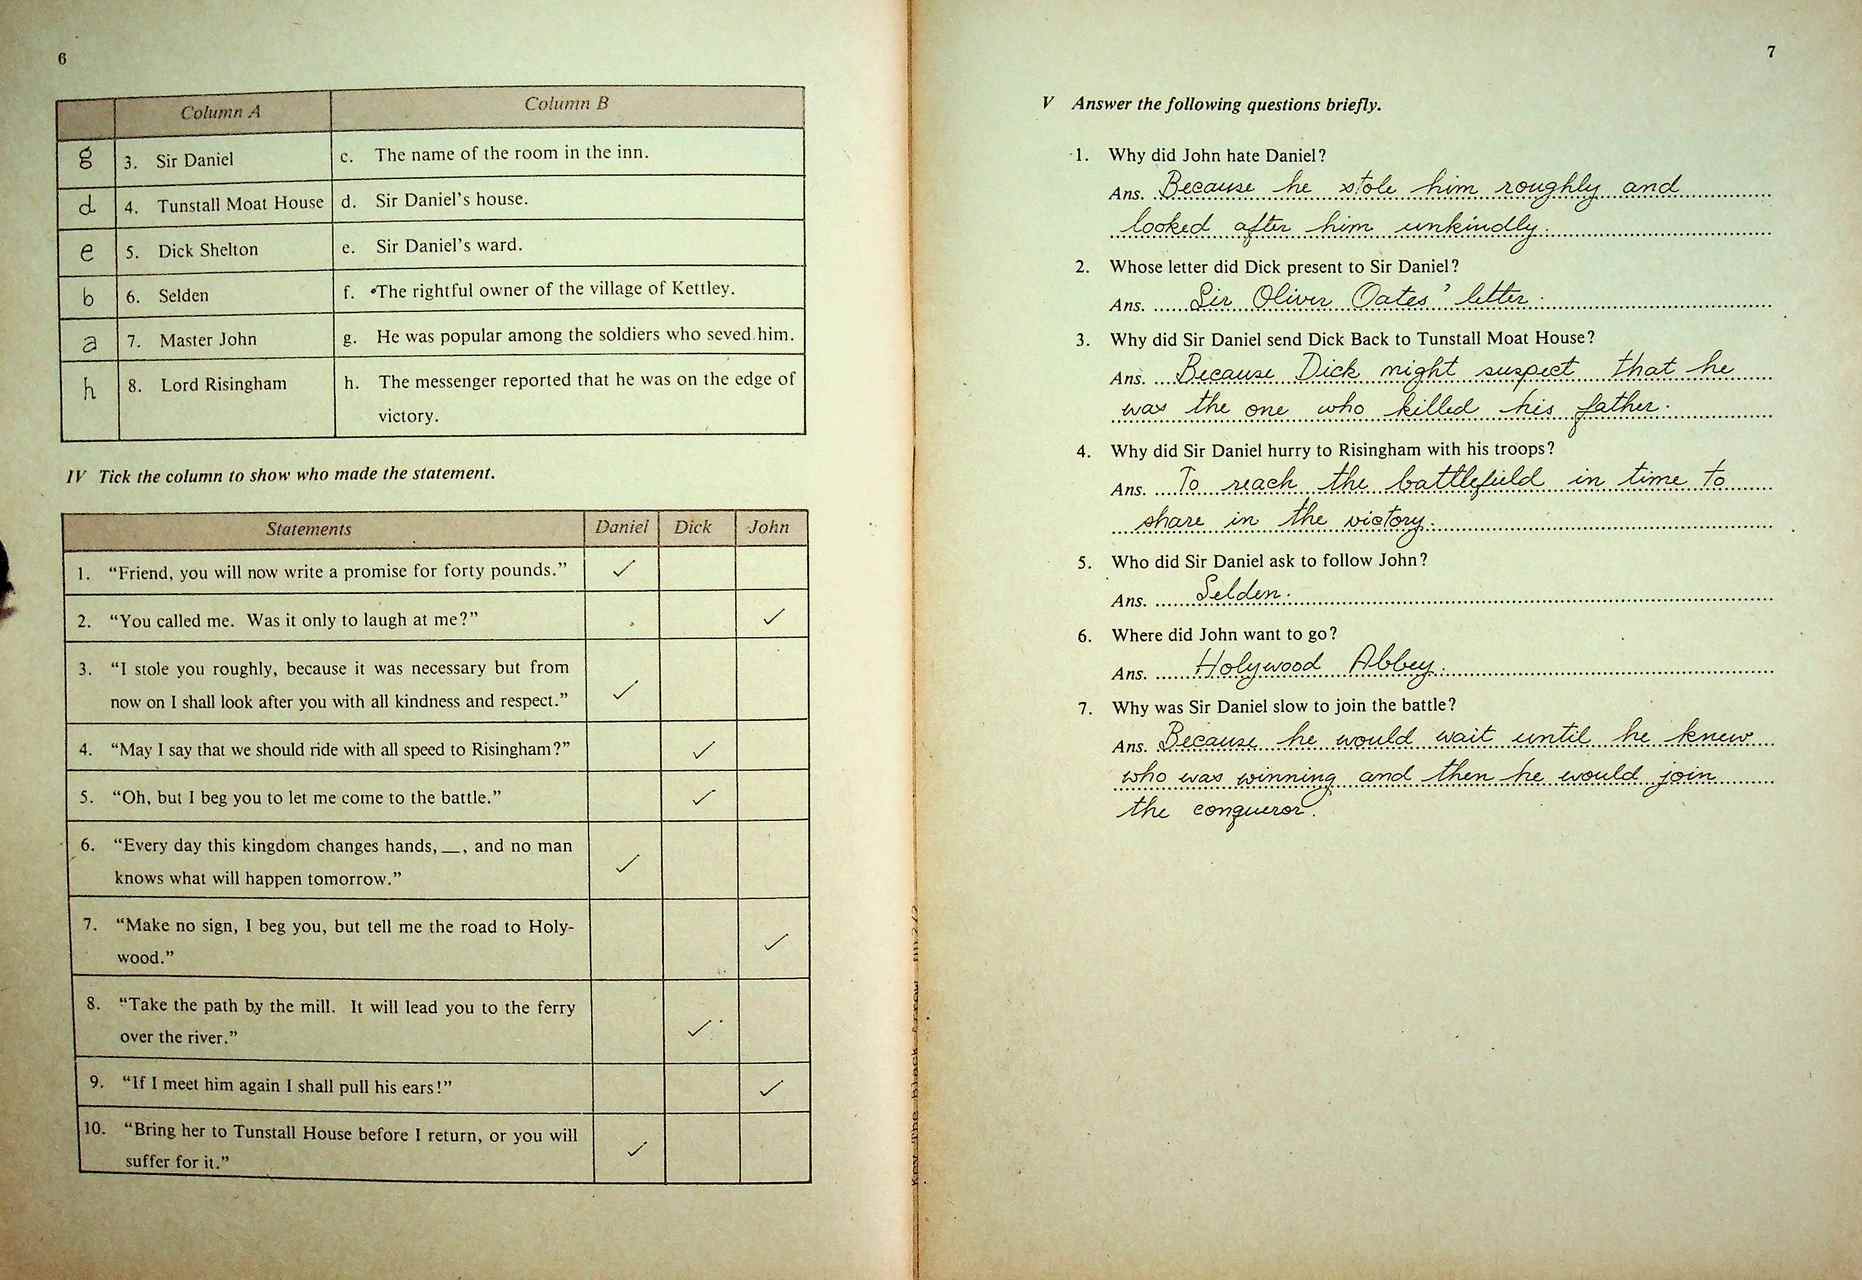 6
Column A Column B
g 3. Sir Daniel c. The name of the room in the inn.
d 4. Tunstall Moat House d. Sir Daniel's house.
e 5. Dick Shelton e. Sir Daniel's ward.
b 6. Selden f. The rightful owner of the village of Kettley.
a 7. Master John g. He was popular among the soldiers who seved him.
h 8. Lord Risingham h. The messenger reported that he was on the edge of
victory.
IV Tick the column to show who made the statement.
Statements Daniel Dick John
1. “Friend, you will now write a promise for forty pounds.” ✓
2. “You called me. Was it only to laugh at me?” ✓
3. “I stole you roughly, because it was necessary but from
now on I shall look after you with all kindness and respect.” ✓
4. “May I say that we should ride with all speed to Risingham?” ✓
5. “Oh, but I beg you to let me come to the battle.” ✓
6. “Every day this kingdom changes hands, __, and no man
knows what will happen tomorrow.” ✓
7. “Make no sign, I beg you, but tell me the road to Holy-
wood.” ✓
8. “Take the path by the mill. It will lead you to the ferry
over the river.” ✓
9. “If I meet him again I shall pull his ears!” ✓
10. “Bring her to Tunstall House before I return, or you will
suffer for it.” ✓
7
V Answer the following questions briefly.
1. Why did John hate Daniel?
Ans. Because he stole him roughly and
looked after him unkindly.
2. Whose letter did Dick present to Sir Daniel?
Ans. Sir Oliver Oates' letter.
3. Why did Sir Daniel send Dick Back to Tunstall Moat House?
Ans. Because Dick might suspect that he
was the one who killed his father.
4. Why did Sir Daniel hurry to Risingham with his troops?
Ans. To reach the battlefield in time to
share in the victory.
5. Who did Sir Daniel ask to follow John?
Ans. Selden.
6. Where did John want to go?
Ans. Holywood Abbey.
7. Why was Sir Daniel slow to join the battle?
Ans. Because he would wait until he knew
who was winning and then he would join
the conqueror.